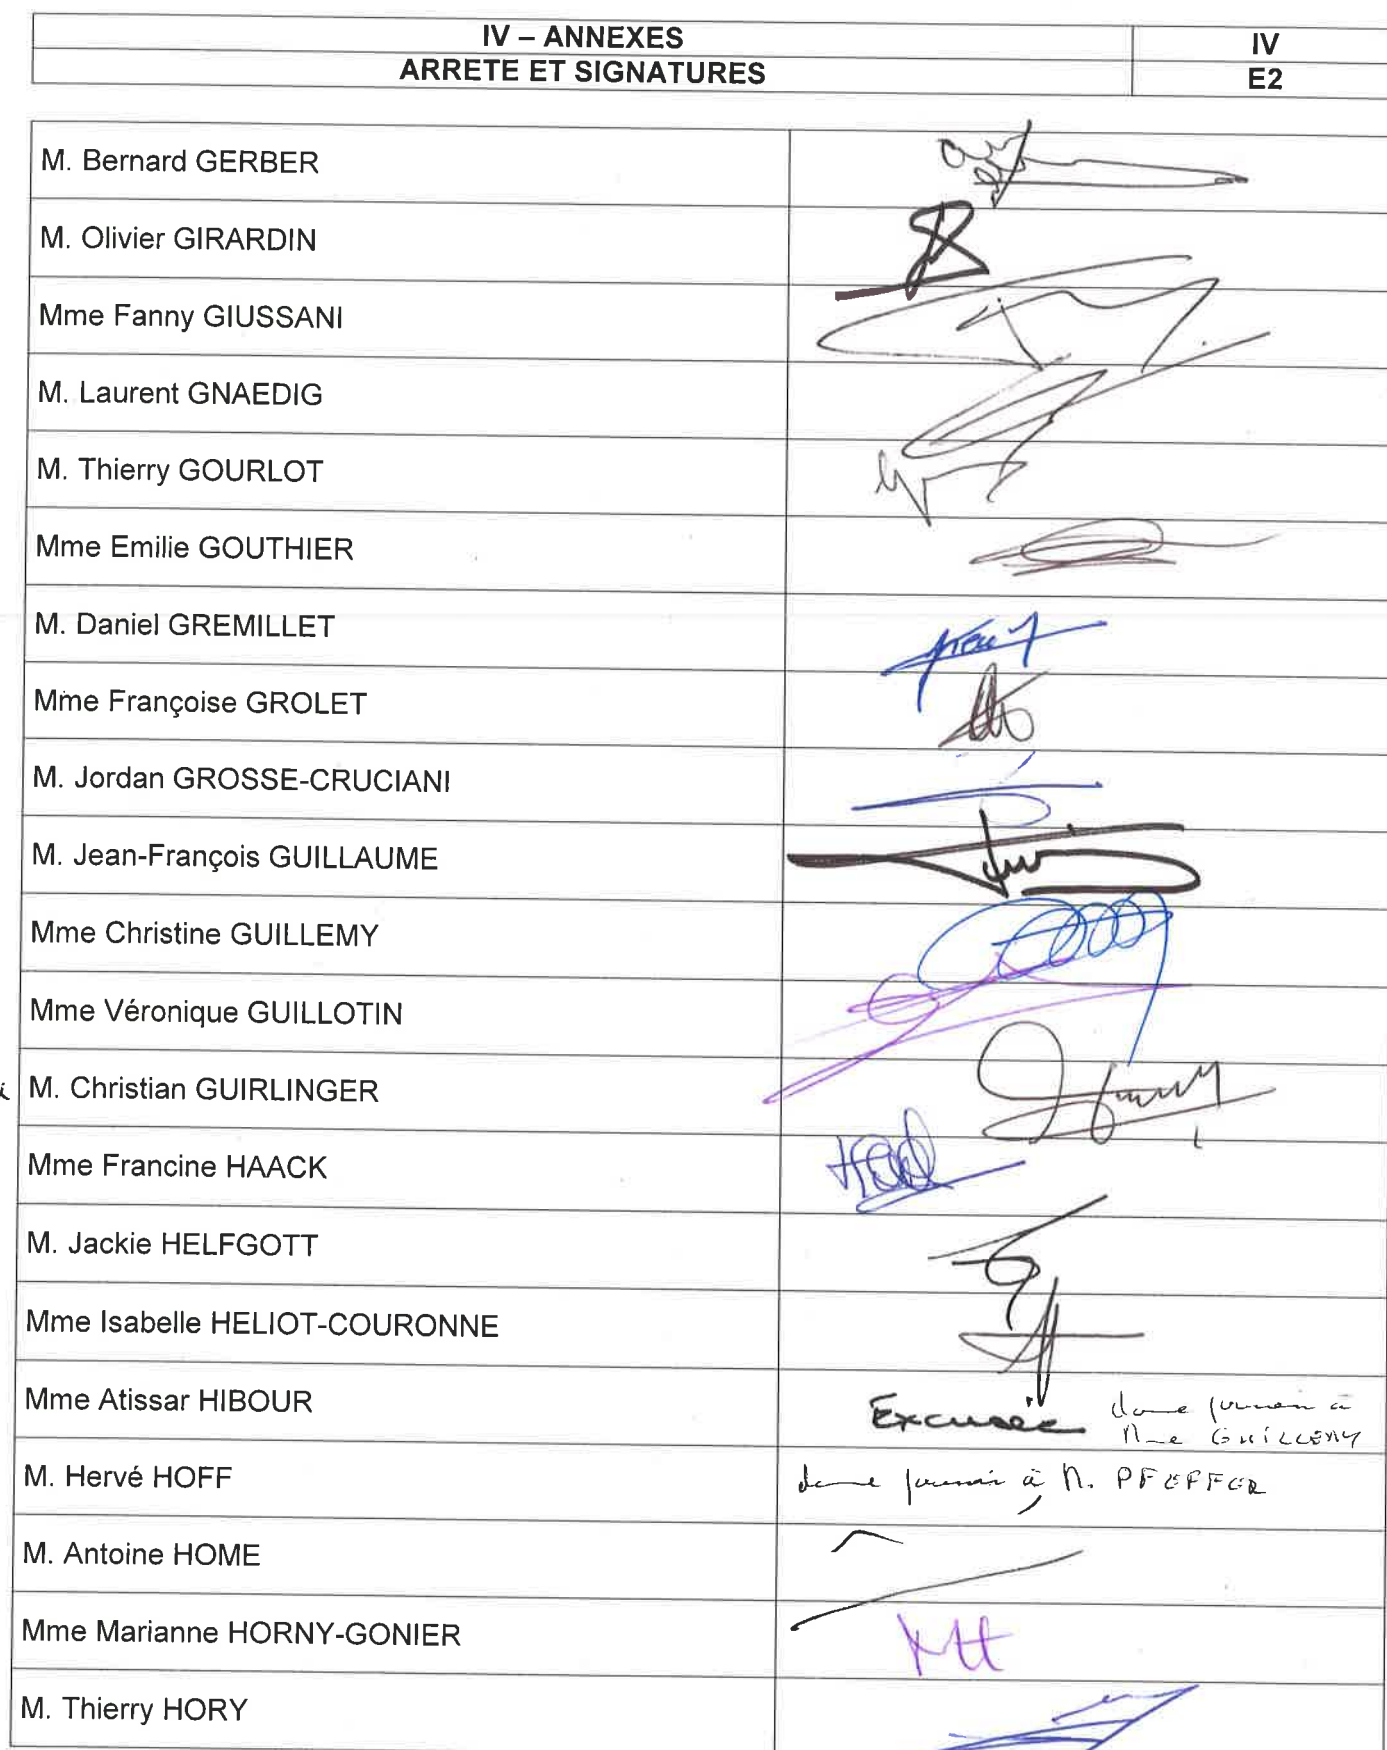 IV – ANNEXES
IV
ARRETE ET SIGNATURES
E2
M. Bernard GERBER
M. Olivier GIRARDIN
Mme Fanny GIUSSANI
M. Laurent GNAEDIG
M. Thierry GOURLOT
Mme Emilie GOUTHIER
M. Daniel GREMILLET
Mme Françoise GROLET
M. Jordan GROSSE-CRUCIANI
M. Jean-François GUILLAUME
Mme Christine GUILLEMY
Mme Véronique GUILLOTIN
M. Christian GUIRLINGER
Mme Francine HAACK
M. Jackie HELFGOTT
Mme Isabelle HELIOT-COURONNE
Mme Atissar HIBOUR
Excusée donne pouvoir à
Mme GUILLEMY
M. Hervé HOFF
donne pouvoir à M. PFEFFER
M. Antoine HOME
Mme Marianne HORNY-GONIER
MH
M. Thierry HORY